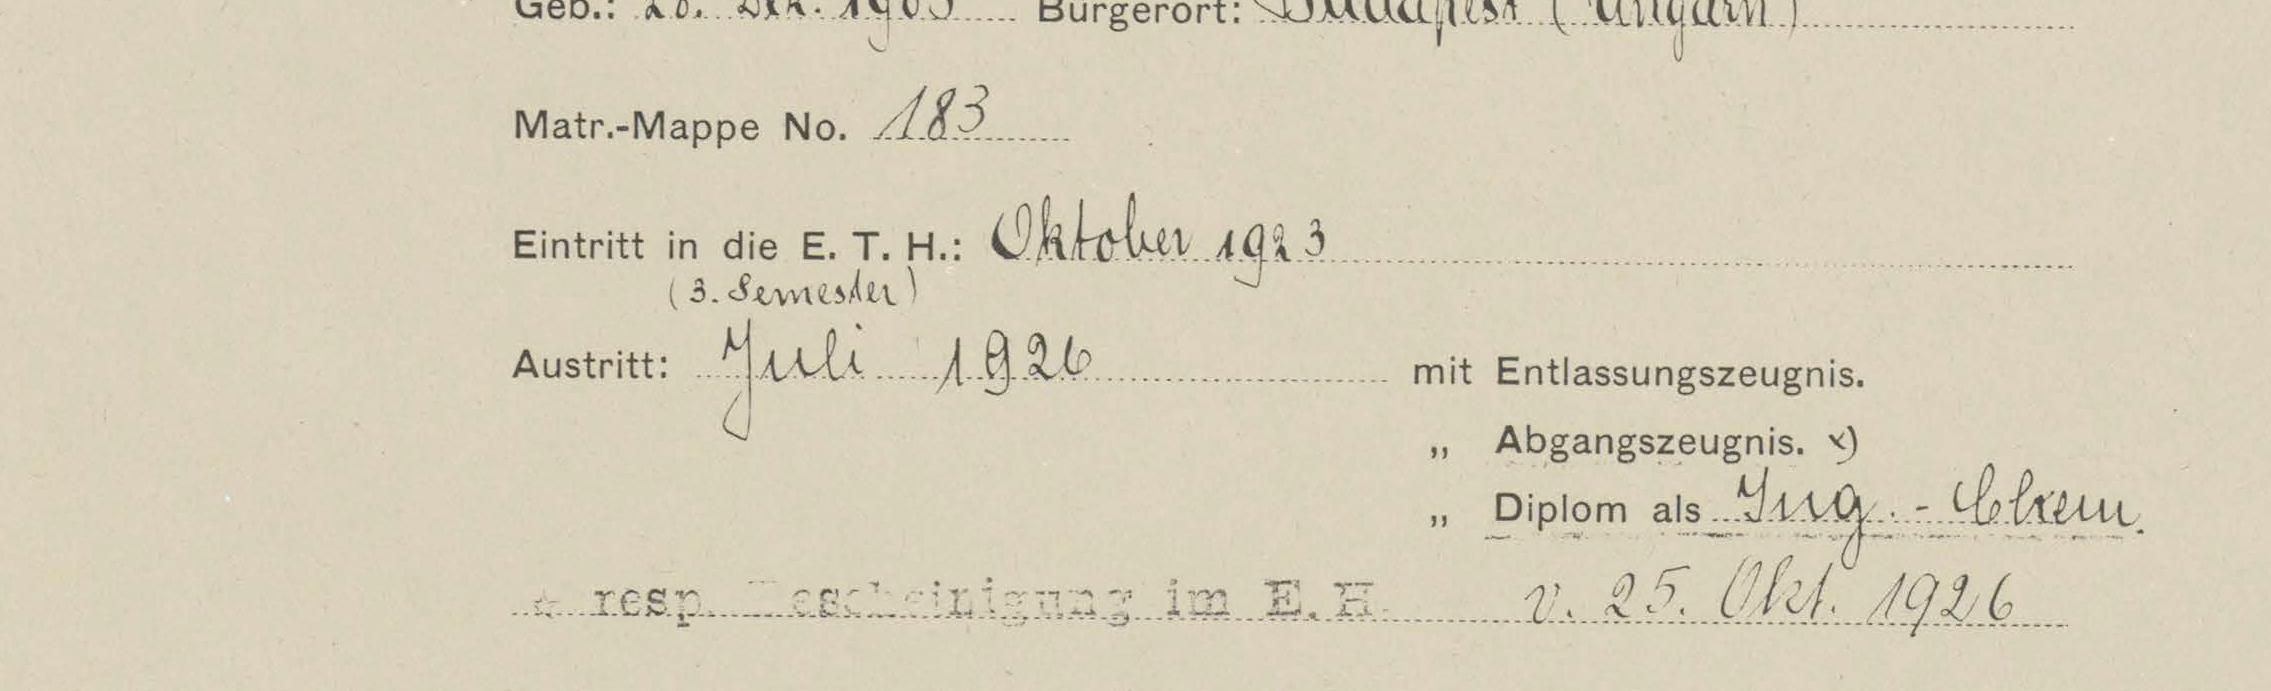 Geb.: 28. Dez. 1903 Bürgerort: Budapest (Ungarn)
Matr.-Mappe No. 183
Eintritt in die E. T. H.: Oktober 1923
(3. Semester)
Austritt: Juli 1926 mit Entlassungszeugnis.
„ Abgangszeugnis. x)
„ Diplom als Ing.-Chem.
resp. Bescheinigung im E.H. v. 25. Okt. 1926